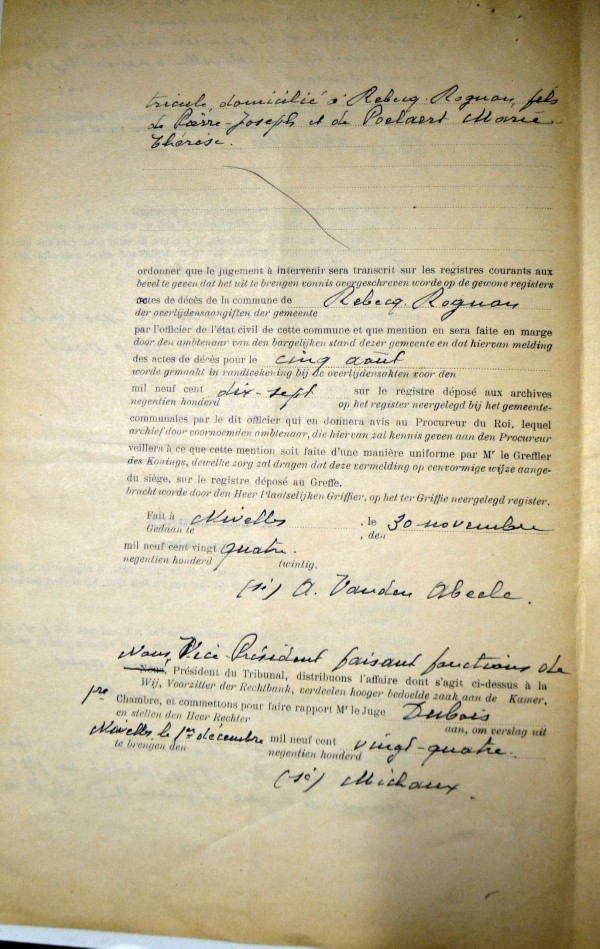 tricule, domicilié à Rebecq-Rognon, fils
de Pierre-Joseph et de Poelaert Marie-
Thérèse.
ordonner que le jugement à intervenir sera transcrit sur les registres courants aux
bevel te geven dat het uit te brengen vonnis overgeschreven worde op de gewone registers
actes de décès de la commune de Rebecq-Rognon
der overlijdensaangiften der gemeente
par l'officier de l'état civil de cette commune et que mention en sera faite en marge
door den ambtenaar van den burgelijken stand dezer gemeente en dat hiervan melding
des actes de décès pour le cinq août
worde gemaakt in randteekening bij de overlijdensakten voor den
mil neuf cent dix-sept sur le registre déposé aux archives
negentien honderd op het register neergelegd bij het gemeente-
communales par le dit officier qui en donnera avis au Procureur du Roi, lequel
archief door voornoemden ambtenaar, die hiervan zal kennis geven aan den Procureur
veillera à ce que cette mention soit faite d'une manière uniforme par Mr le Greffier
des Konings, dewelke zorg zal dragen dat deze vermelding op eenvormige wijze aange-
du siège, sur le registre déposé au Greffe.
bracht worde door den Heer Plaatselijken Griffier, op het ter Griffie neergelegd register.
Fait à Nivelles, le 30 novembre
Gedaan te , den
mil neuf cent vingt quatre.
negentien honderd twintig.
(sé) A. Vanden Abeele.
Nous, Vice-Président faisant fonctions de
Nous, Président du Tribunal, distribuons l'affaire dont s'agit ci-dessus à la
Wij, Voorzitter der Rechtbank, verdeelen hooger bedoelde zaak aan de Kamer,
pre Chambre, et commettons pour faire rapport Mr le Juge Dubois
en stellen den Heer Rechter aan, om verslag uit
Nivelles, le 1er décembre mil neuf cent vingt-quatre.
te brengen den negentien honderd
(sé) Michaux.